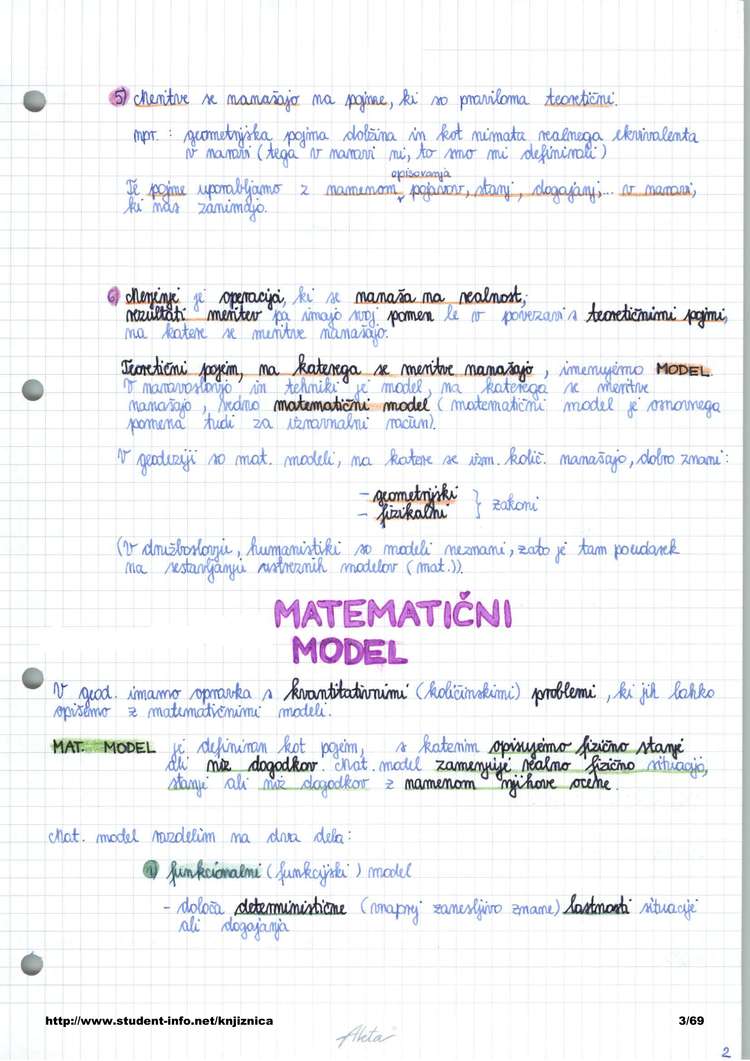 5) Meritve se nanašajo na pojme, ki so praviloma teoretični.
npr. : geometrijska pojma dolžina in kot nimata realnega ekvivalenta
v naravi (tega v naravi ni, to smo mi definirali)
opisovanja
Te pojme uporabljamo z namenom pojavov, stanj, dogajanj,... v naravi,
ki nas zanimajo.
6) Merjenje je operacija, ki se nanaša na realnost,
rezultati meritev pa imajo svoj pomen le v povezavi s teoretičnimi pojmi,
na katere se meritve nanašajo.
Teoretični pojem, na katerega se meritve nanašajo, imenujemo MODEL.
V naravoslovju in tehniki je model, na katerega se meritve
nanašajo, vedno matematični model (matematični model je osnovnega
pomena tudi za izravnalni račun).
V geodeziji so mat. modeli, na katere se izm. količ. nanašajo, dobro znani:
- geometrijski
- fizikalni } zakoni
(V družboslovju, humanistiki so modeli neznani, zato je tam poudarek
na sestavljanju ustreznih modelov (mat.)).
MATEMATIČNI
MODEL
V geod. imamo opravka s kvantitativnimi (količinskimi) problemi, ki jih lahko
opišemo z matematičnimi modeli.
MAT. MODEL je definiran kot pojem, s katerim opisujemo fizično stanje
ali niz dogodkov. Mat. model zamenjuje realno fizično situacijo,
stanje ali niz dogodkov z namenom njihove ocene.
Mat. model razdelim na dva dela:
1) funkcionalni (funkcijski) model
- določa deterministične (vnaprej zanesljivo znane) lastnosti situacije
ali dogajanja
http://www.student-info.net/knjiznica 3/69
2